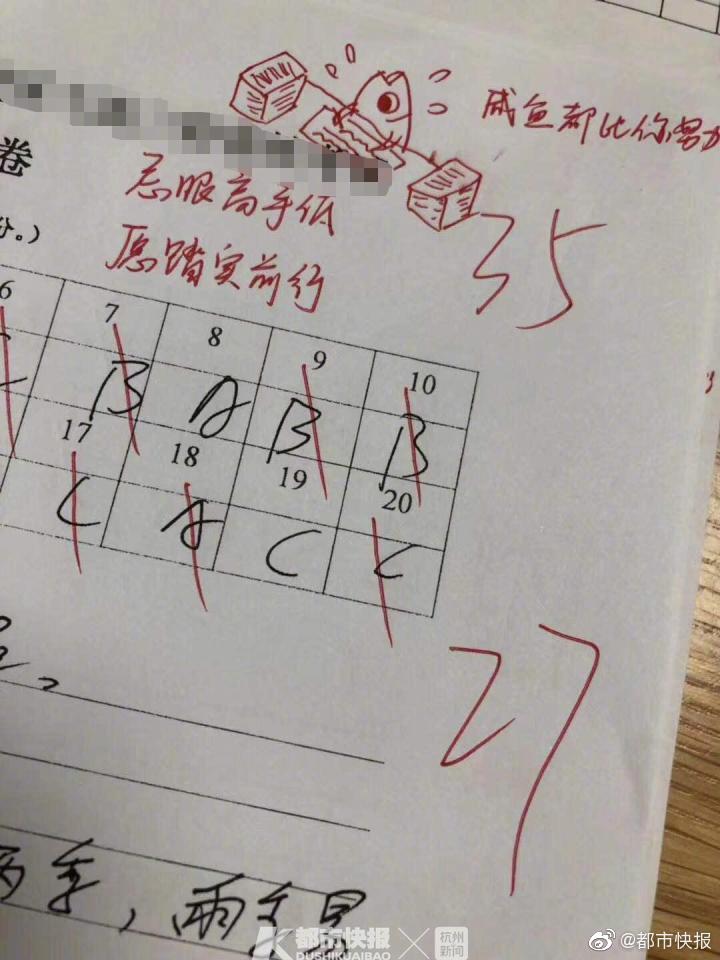 咸鱼都比你努力
卷
忌眼高手低
35
分。)
愿踏实前行
6 7 8 9 10
B A B B
17 18 19 20
C A C C
27
季，雨季是
都市快报 × 杭州新闻
DUSHIKUAIBAO
@都市快报